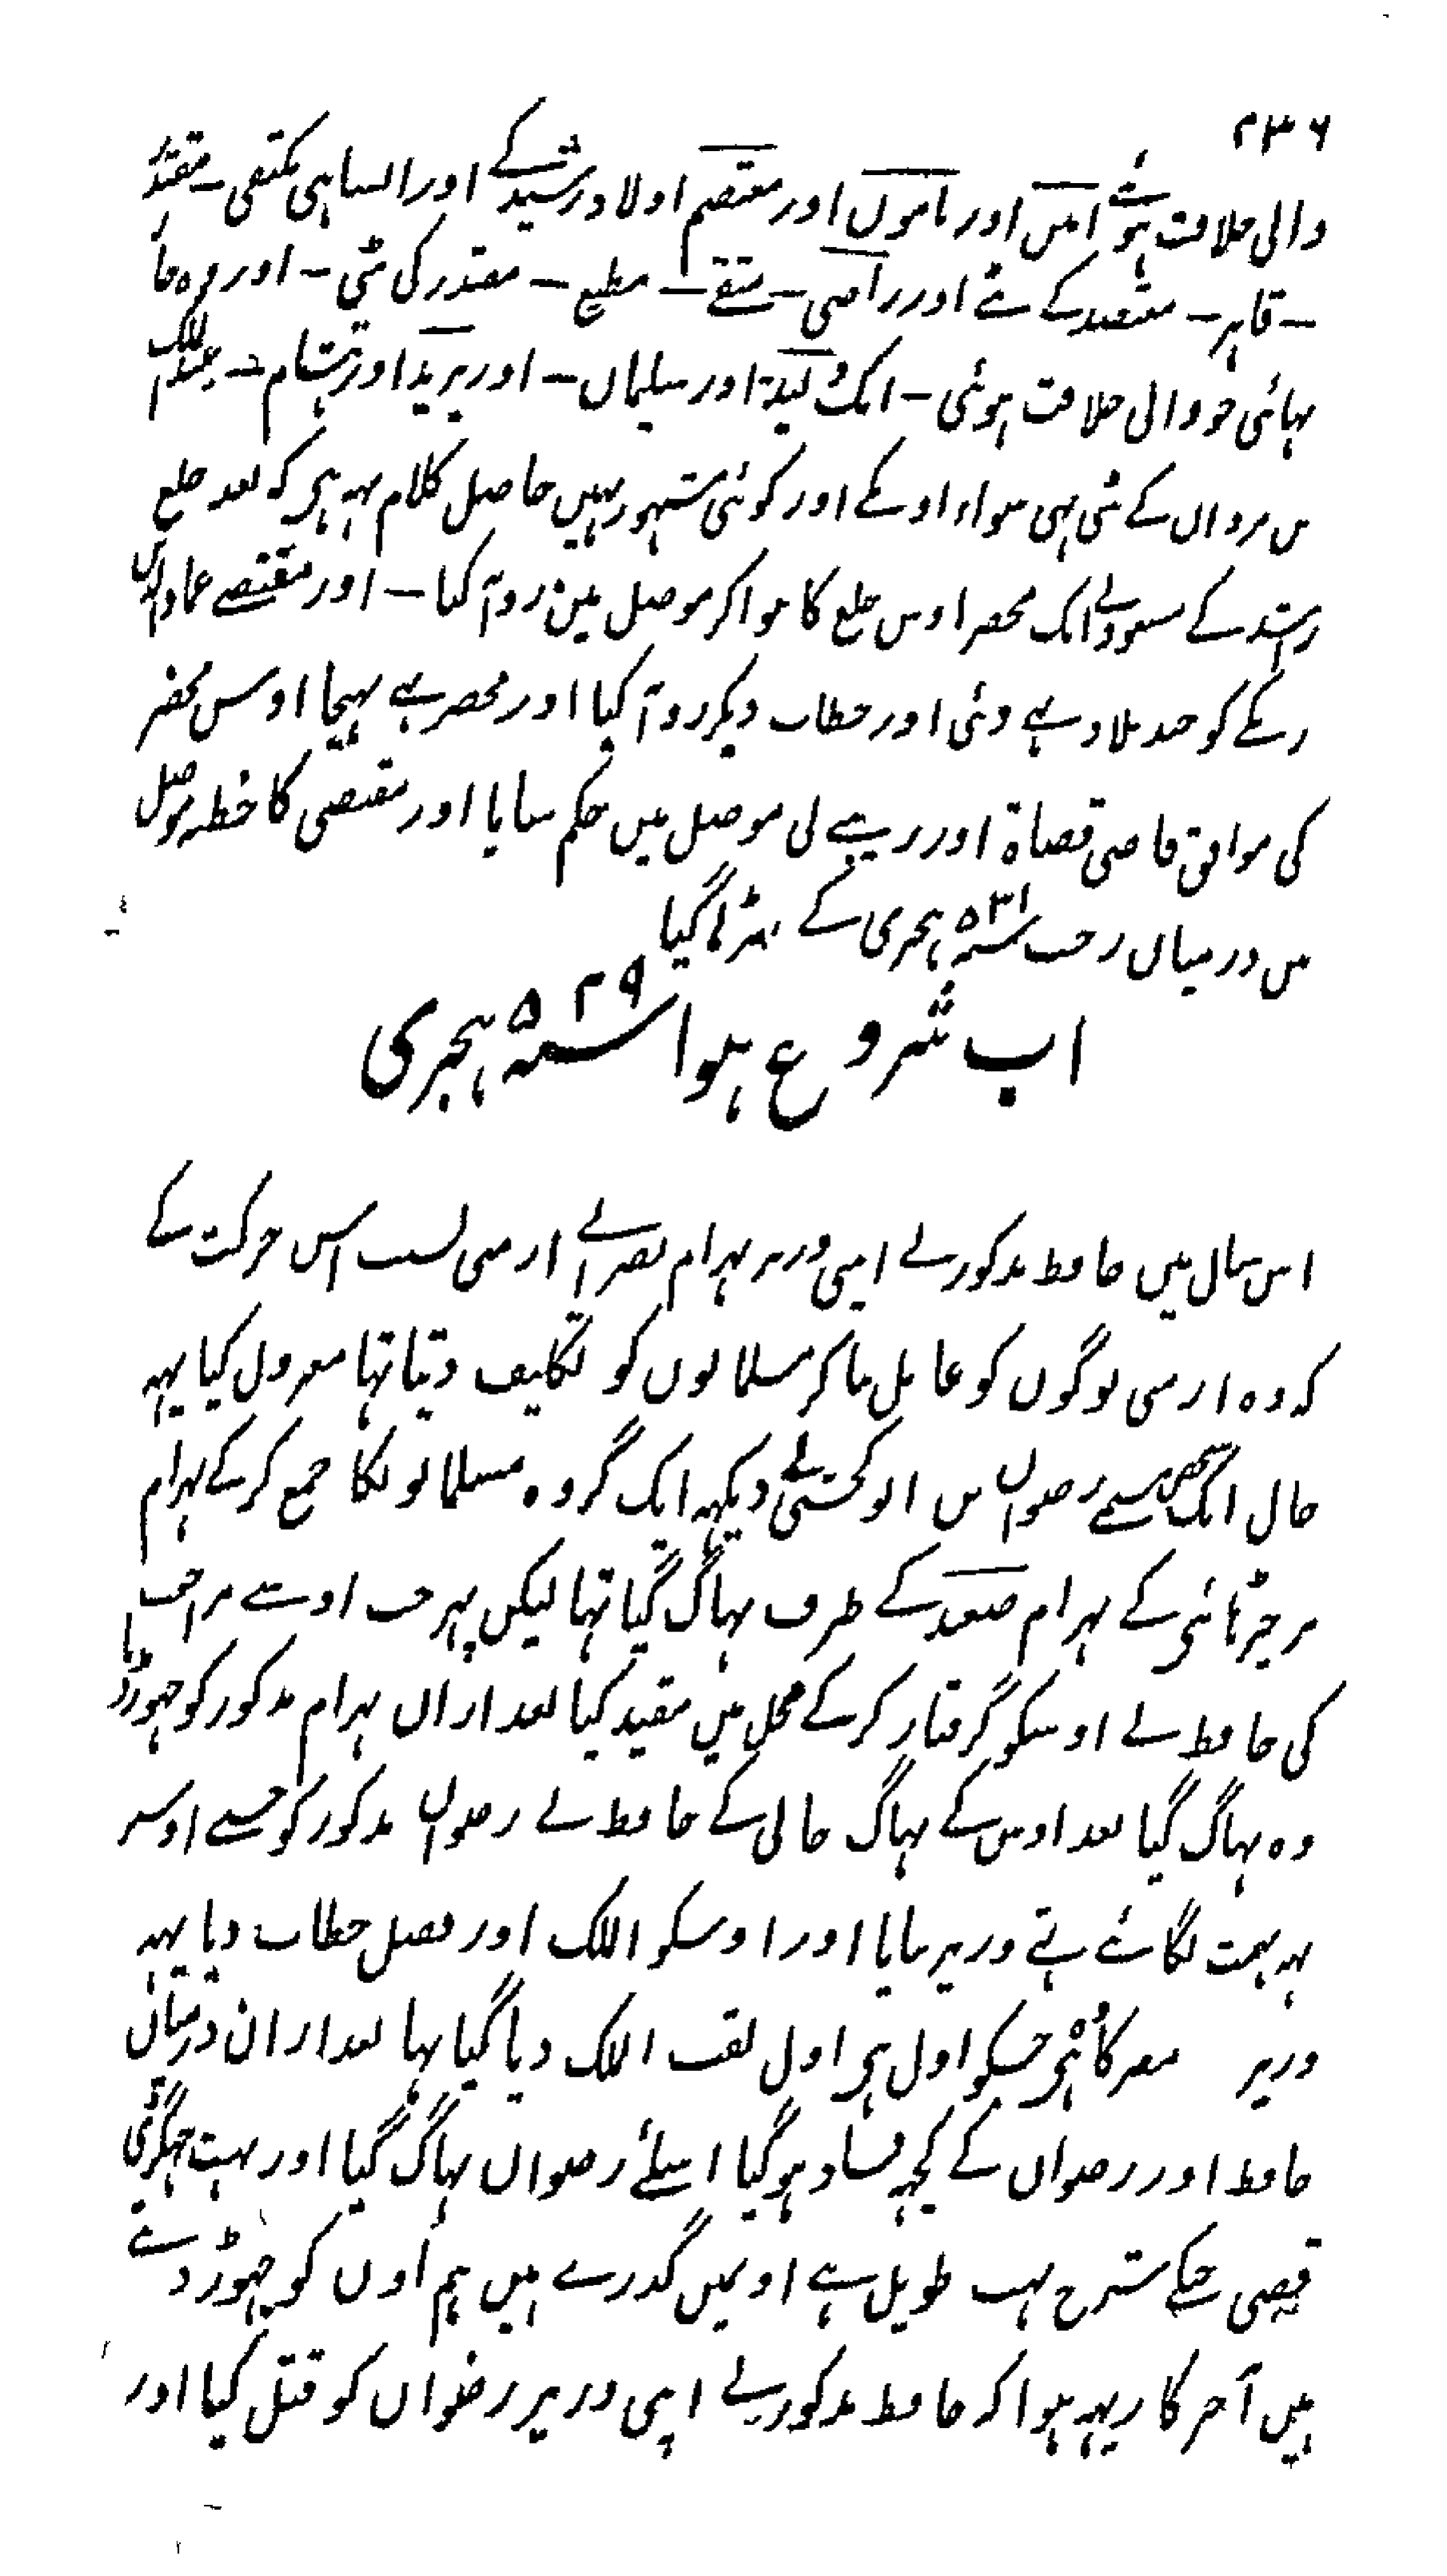 ۲۳۶
والی خلافت ہوئے امین اور مامون اور معتصم اولاد رشید کے اور ایسا ہی مکتفی - مقتدر
- قاہر - معتضد کے بیٹے اور راضی - متقے - مطیع - مقتدر کی بیٹی - اور وہ چار
بہائی جو والی خلافت ہوئی - ایک ولید اور سلیمان - اور یزید اور ہشام - عبد الملک
بن مروان کے بیٹی ہیں سواء اونکے اور کوئی مشہور نہیں حاصل کلام یہہ ہی کہ بعد خلع
راشد کے مسعود نے ایک محضر اوس خلع کا بنوا کر موصل مین روانہ کیا - اور مقتفے نے عماد الدین
زنگے کو چند بلاد بہی دئی اور خطاب دیکر روانہ کیا اور محضر بہے بہیجا اوس محضر
کی موافق قاضی قضاۃ اور زینبے نی موصل میں حکم سنایا اور مقتفی کا خطبہ موصل
میں درمیان رجب سنہ ۵۳۱ ہجری کے پڑہا گیا
اب شروع ہوا سنہ ۵۲۹ ہجری
اس سال میں حافظ مذکور نے اپنی وزیر بہرام نصرانے ارمنی بسبب اس حرکت کے
کہ وہ ارمنی لوگوں کو عامل بنا کر مسلمانوں کو تکلیف دیتا تہا معزول کیا یہہ
حال ایک شخص مسمے رضوان بن الولخشی نے دیکہہ ایک گروہ مسلمانونکا جمع کر کے بہرام
پر چڑہائی کے بہرام صعید کے طرف بہاگ گیا تہا لیکن پہر جب اوسے مراجعت
کی حافظ نے اوسکو گرفتار کر کے محل میں مقید کیا بعد ازان بہرام مذکور کو چہوڑ دیا
وہ بہاگ گیا بعد اوس کے بہاگ جانی کے حافظ نے رضوان مذکور کو جسے اوسپر
یہہ تہمت لگائے تہے وزیر بنایا اور اوسکو الملک اور فضل خطاب دیا یہہ
وزیر مصر کا ہی جسکو اول ہی اول لقب الملک دیا گیا تہا بعد ازان درمیان
حافظ اور رضوان کے کچہہ فساد ہو گیا اسلئے رضوان بہاگ گیا اور بہت جہگڑی
قصی جنکے شرح بہت طویل ہے اونمیں گذرے ہیں ہم اون کو چہوڑ دیتے
ہیں آخر کار یہہ ہوا کہ حافظ مذکور نے اپنی وزیر رضوان کو قتل کیا اور